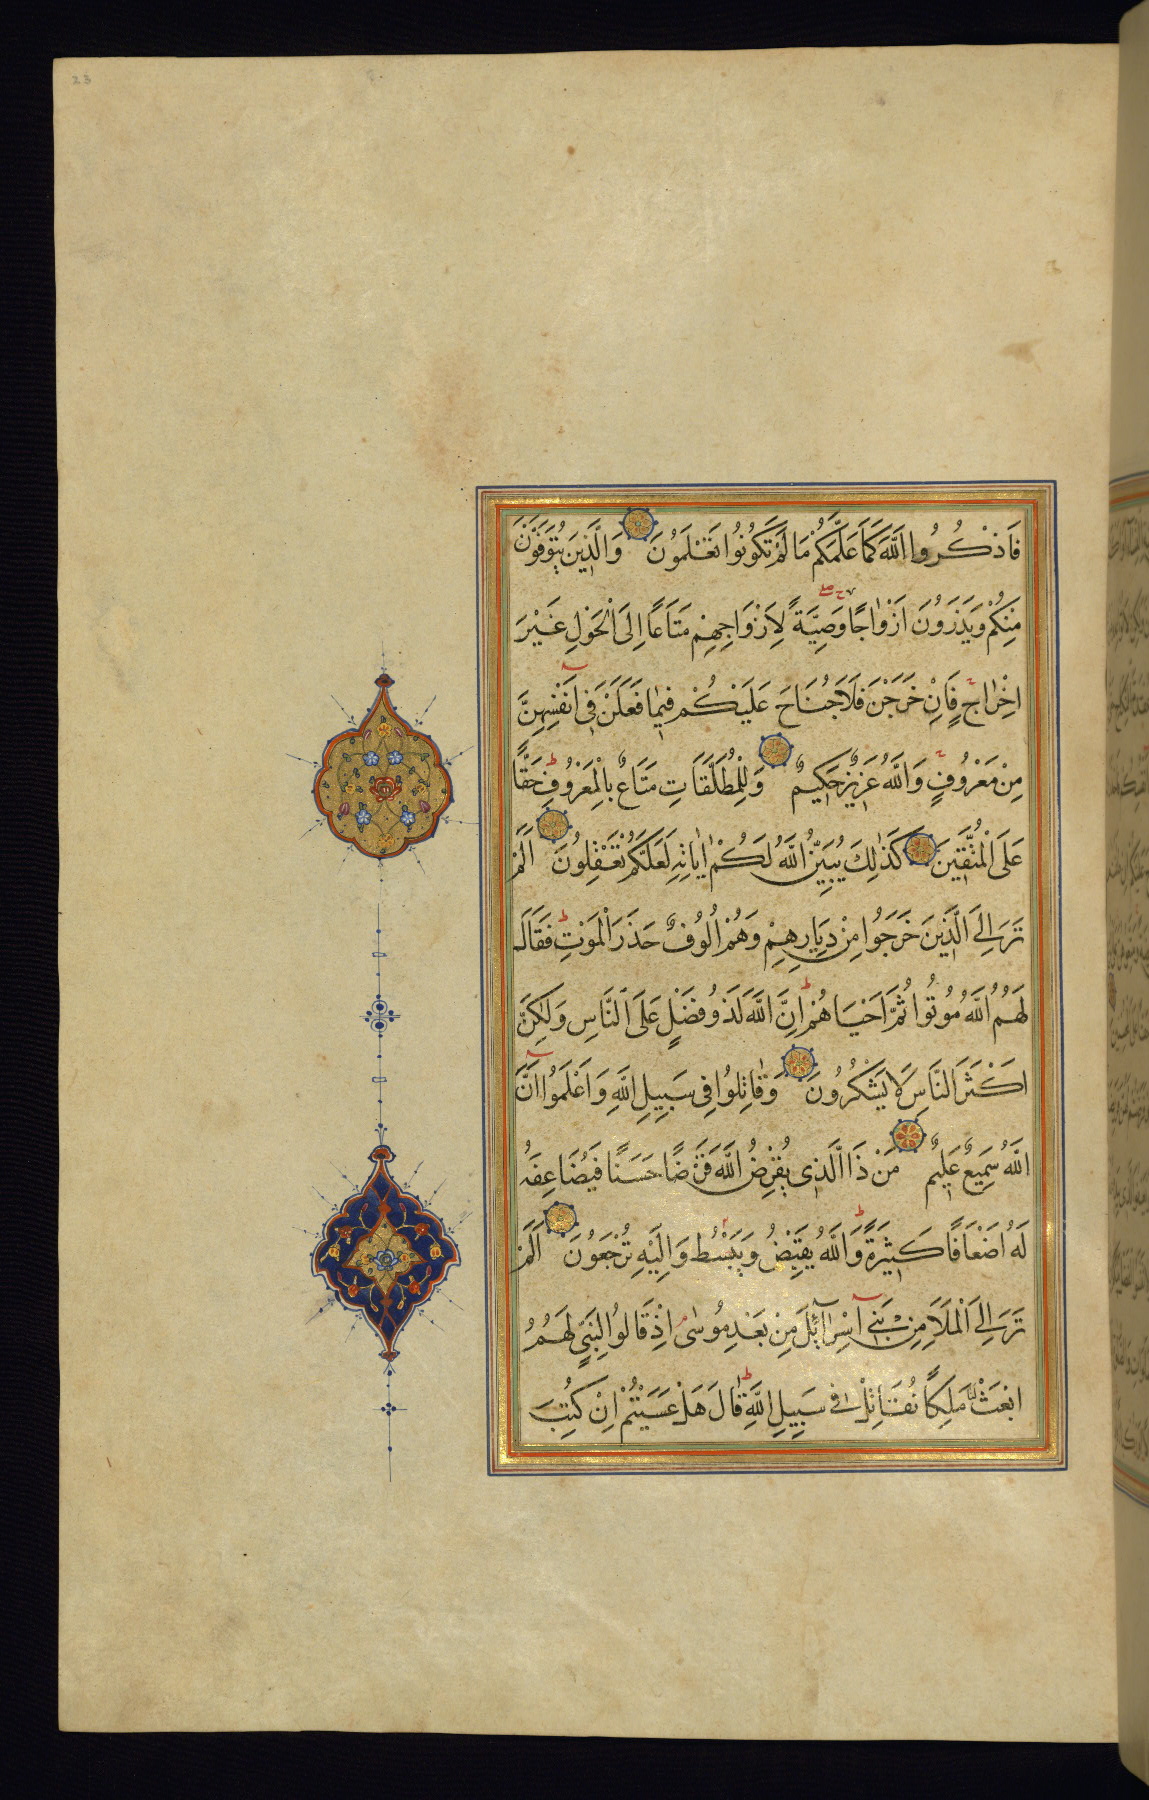 23
فَاذْكُرُوا اللَّهَ كَمَا عَلَّمَكُمْ مَا لَمْ تَكُونُوا تَعْلَمُونَ وَالَّذِينَ يُتَوَفَّوْنَ
مِنْكُمْ وَيَذَرُونَ اَزْوَاجًا وَصِيَّةً لِاَزْوَاجِهِمْ مَتَاعًا اِلَى الْحَوْلِ غَيْرَ
اِخْرَاجٍ فَاِنْ خَرَجْنَ فَلَا جُنَاحَ عَلَيْكُمْ فِيمَا فَعَلْنَ فِى اَنْفُسِهِنَّ
مِنْ مَعْرُوفٍ وَاللَّهُ عَزِيزٌ حَكِيمٌ وَلِلْمُطَلَّقَاتِ مَتَاعٌ بِالْمَعْرُوفِ حَقًّا
عَلَى الْمُتَّقِينَ كَذٰلِكَ يُبَيِّنُ اللَّهُ لَكُمْ اٰيَاتِهِ لَعَلَّكُمْ تَعْقِلُونَ اَلَمْ
تَرَ اِلَى الَّذِينَ خَرَجُوا مِنْ دِيَارِهِمْ وَهُمْ اُلُوفٌ حَذَرَ الْمَوْتِ فَقَالَ
لَهُمُ اللَّهُ مُوتُوا ثُمَّ اَحْيَاهُمْ اِنَّ اللَّهَ لَذُو فَضْلٍ عَلَى النَّاسِ وَلٰكِنَّ
اَكْثَرَ النَّاسِ لَا يَشْكُرُونَ وَقَاتِلُوا فِى سَبِيلِ اللَّهِ وَاعْلَمُوا اَنَّ
اللَّهَ سَمِيعٌ عَلِيمٌ مَنْ ذَا الَّذِى يُقْرِضُ اللَّهَ قَرْضًا حَسَنًا فَيُضَاعِفَهُ
لَهُ اَضْعَافًا كَثِيرَةً وَاللَّهُ يَقْبِضُ وَيَبْسُطُ وَاِلَيْهِ تُرْجَعُونَ اَلَمْ
تَرَ اِلَى الْمَلَاِ مِنْ بَنِى اِسْرَآئِلَ مِنْ بَعْدِ مُوسٰى اِذْ قَالُوا لِنَبِىٍّ لَهُمُ
ابْعَثْ لَنَا مَلِكًا نُقَاتِلْ فِى سَبِيلِ اللَّهِ قَالَ هَلْ عَسَيْتُمْ اِنْ كُتِبَ